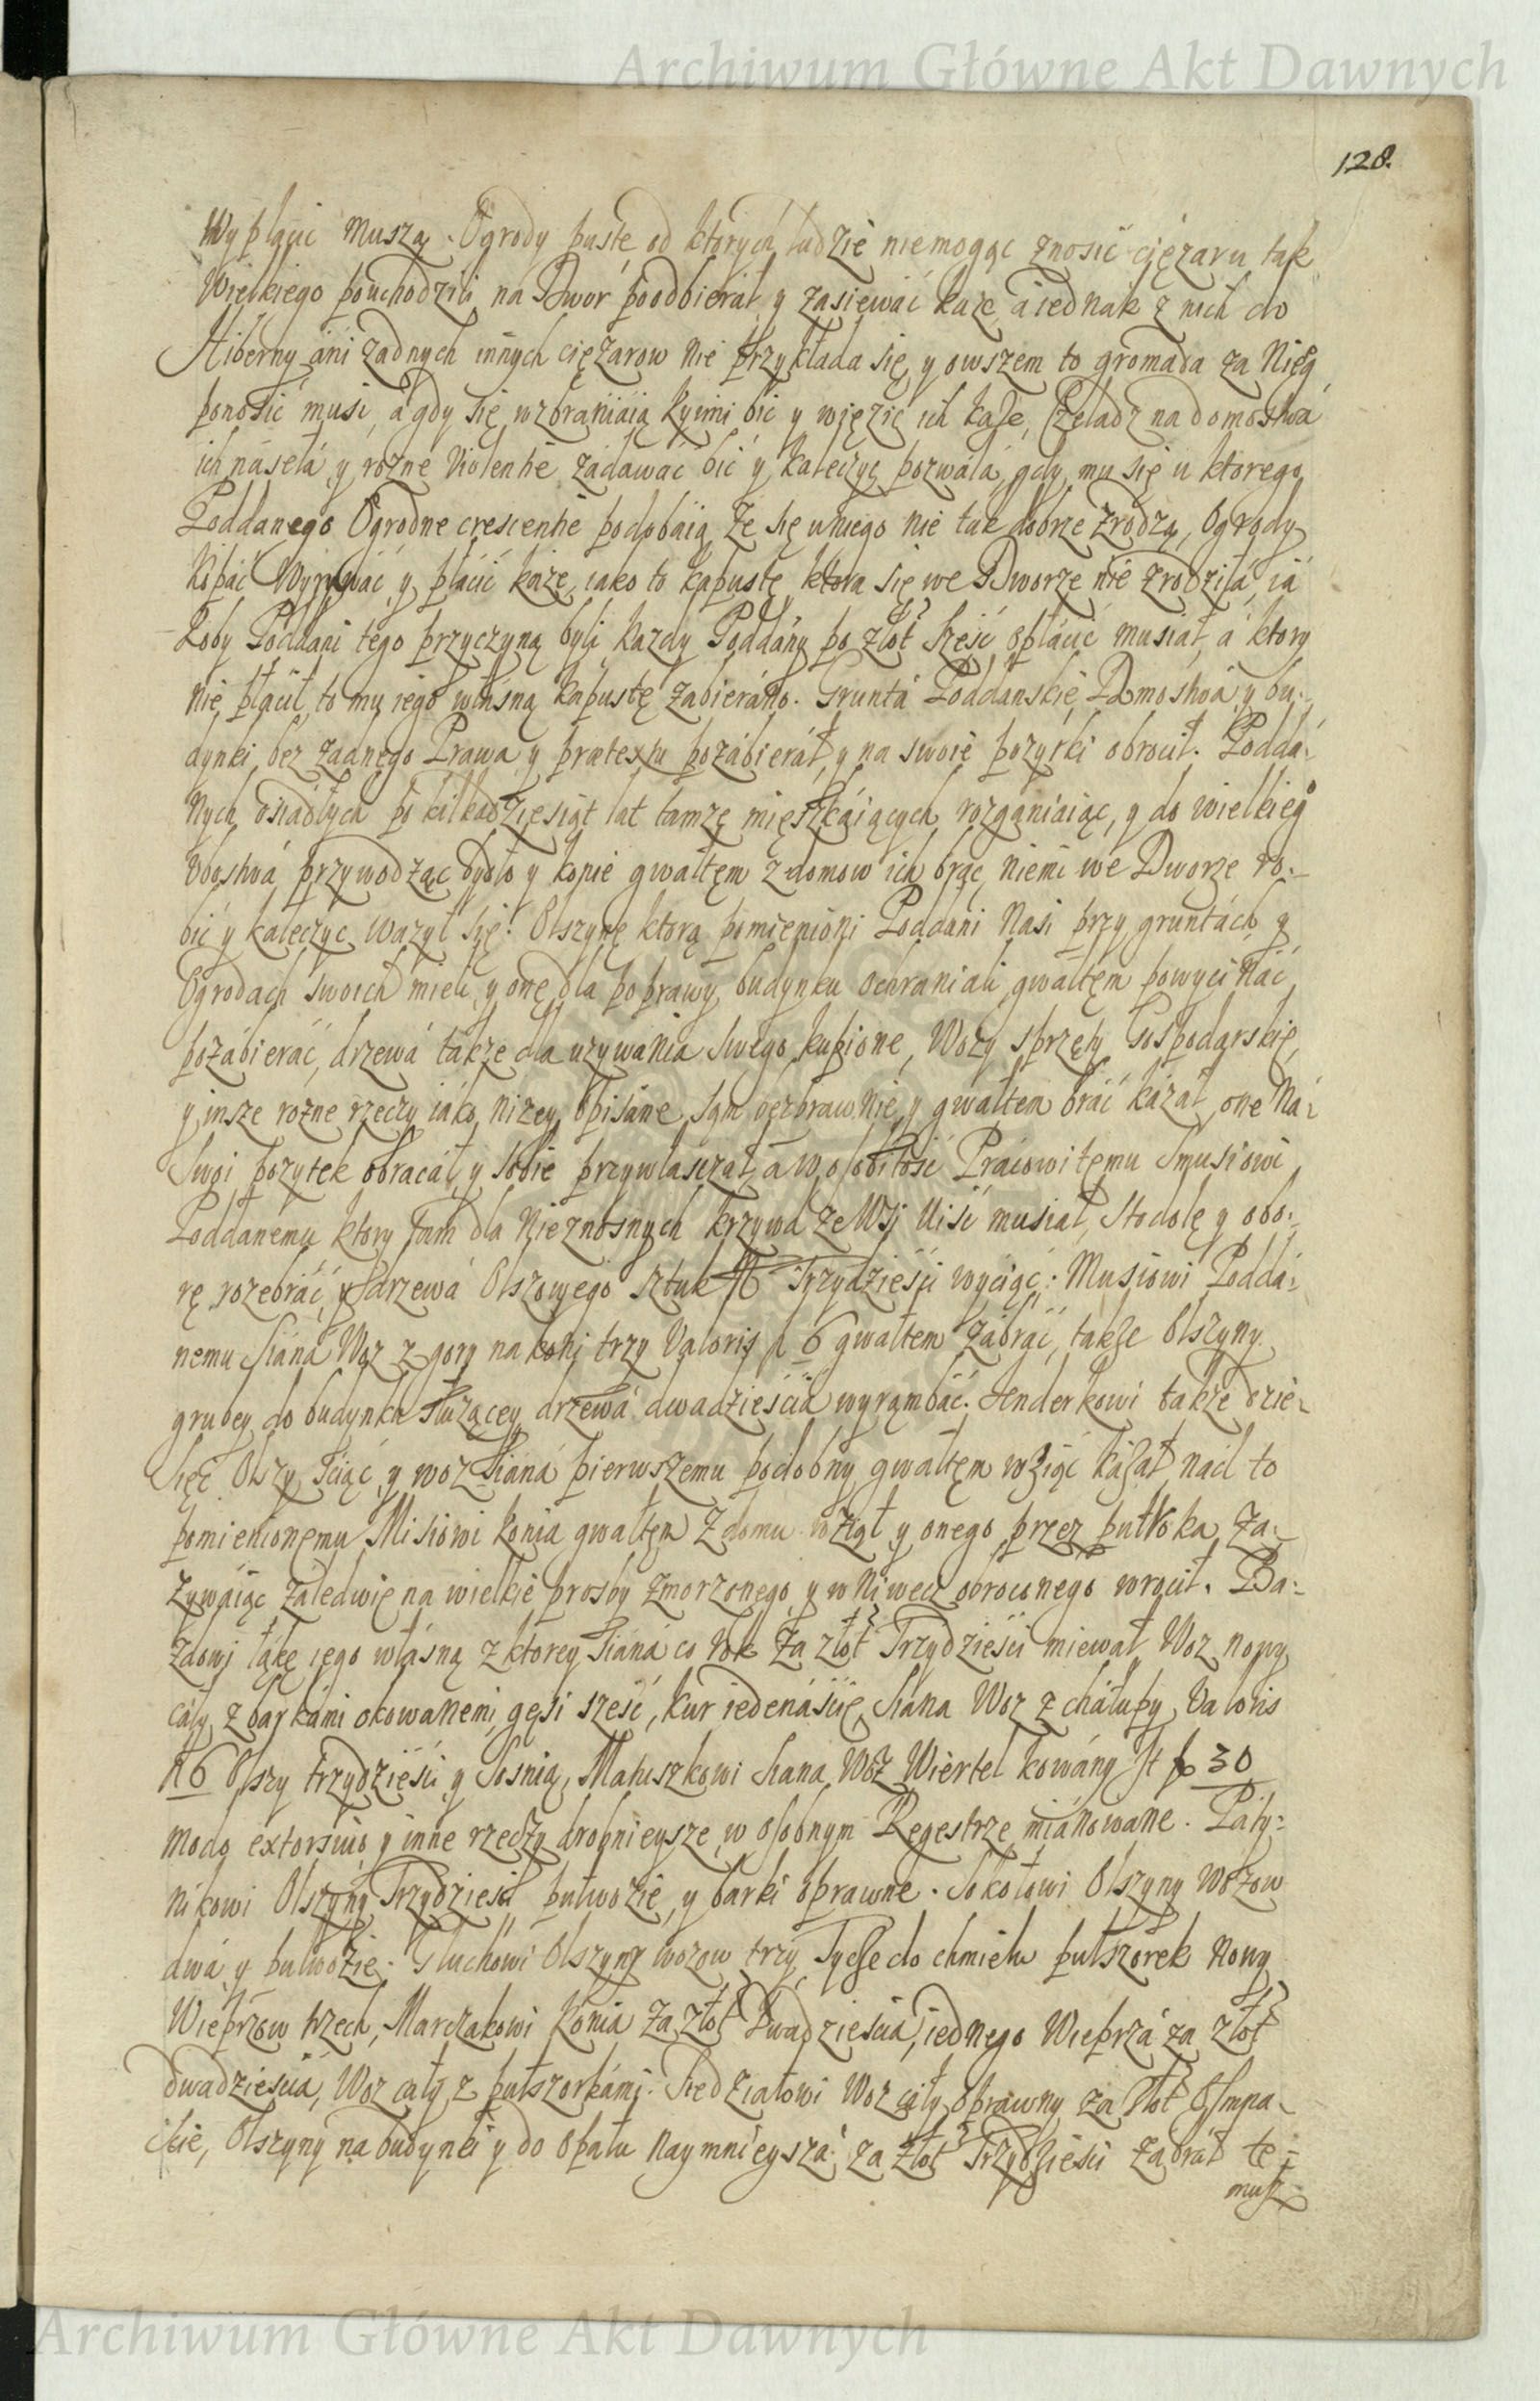 Archiwum Główne Akt Dawnych
128.
Wypłacic muszą. Ogrody puste od ktorych ludzie niemogąc znosić ciężaru tak
Wielkiego pouchodzili na Dwor poodbierał y zasiewać każe, a iednak z nich do
Hiberny ani żadnych innych ciężarow nie przykłada się, y owszem to gromada za Nieg
ponosić musi, a gdy się wzbraniaią kyimi bić y więzić ich każe, Czeladz na domostwa
ich naseła, y rożne violentie zadawać bić y kaleczyc pozwala, gdy mu się u ktorego
Poddanego Ogrodne crescentie podobaią, że się u niego nie tak dobrze zrodzą, Ogrody
kopać Wyrywać, y płacić każe, iako to kapustę ktora się we Dworze nie zrodziła, ia
koby Poddani tego przyczyną byli każdy Poddany po złot sześć opłacić musiał, a ktory
nie płacił, to mu iego własną kapustę zabierano. Grunta Poddanskie, Domostwa y bu-
dynki, bez żadnego Prawa y praetextu pozabierał, y na swoie pożytki obrocił. Podda-
nych osiadłych po kilkadziesiąt lat tamże mięszkaiących rozganiaiąc, y do wielkieg
Ubostwa przywodząc bydło y konie gwałtem z domow ich brac, niemi we Dworze ro-
bić y kaleczyc ważył się. Olszynę ktorą pomienioni Poddani Nasi przy gruntach y
Ogrodach swoich mieli, y onę dla poprawy budynku ochraniali, gwałtem powycinać
pozabierać, drzewa także dla uzywania swego kupione, Wozy sprzęty Gospodarskie,
y insze rożne rzeczy iako niżey opisane, sam bezprawnie, y gwałtem brać kazał, one na
swoi pożytek obracał, y sobie przywłaszczał, a w osobitość Pracowitemu Smusiowi
Poddanemu ktory sam dla nieznosnych krzywd ze Wsi uiść musiał, Stodołę y obo-
rę rozebrać, y drzewa Olszowego sztuk Trzydzieści wyciąć: Musiowi Podda-
nemu siana Woz z gory na koni trzy Valoris f 6 gwałtem zabrać, także Olszyny
grubey do budynku służącey drzewa dwadzieścia wyrąmbać. Anderkowi także dzie-
sięć Olszy ściąć, y woz siana pierwszemu podobny gwałtem wziąć kazał, nad to
pomienionemu Misiowi konia gwałtem z domu wziął y onego przez pułroka za-
żywaiąc zaledwie na wielkie prosby zmorzonego, y w niwecz obroconego wrocił. Ba-
zdowi łąkę iego własną z ktorey siana co rok za złot Trzydzieści miewał, Woz nowy
cały z barkami okowanemi, gęsi sześć, kur iedenaście, siana Woz z chałupy Valoris
f 6 Olszy trzydzieści, y Sosnią, Matuszkowi siana Woz Wiertel kowany f 30
modo extorsivo y inne rzeczy drobnieysze w osobnym Regestrze mianowane. Paty-
nikowi Olszyny Trzydzieści pułwozie, y barki oprawne. Sokołowi Olszyny Wozow
dwa y pułwozie. Głuchowi Olszyny wozow trzy, Tycze do chmielu pułszorek nowy
Wieprzow trzech, Marczakowi Konia za złot Dwadzieścia, iednego Wieprza za złot
dwadzieścia, Woz cały z pułszorkami. Siedziałowi Woz cały oprawny za złot Osmna-
scie, Olszyny na budynki y do opału naymnieysza za złot Trzydzieści zabrał te-
musz
Archiwum Główne Akt Dawnych